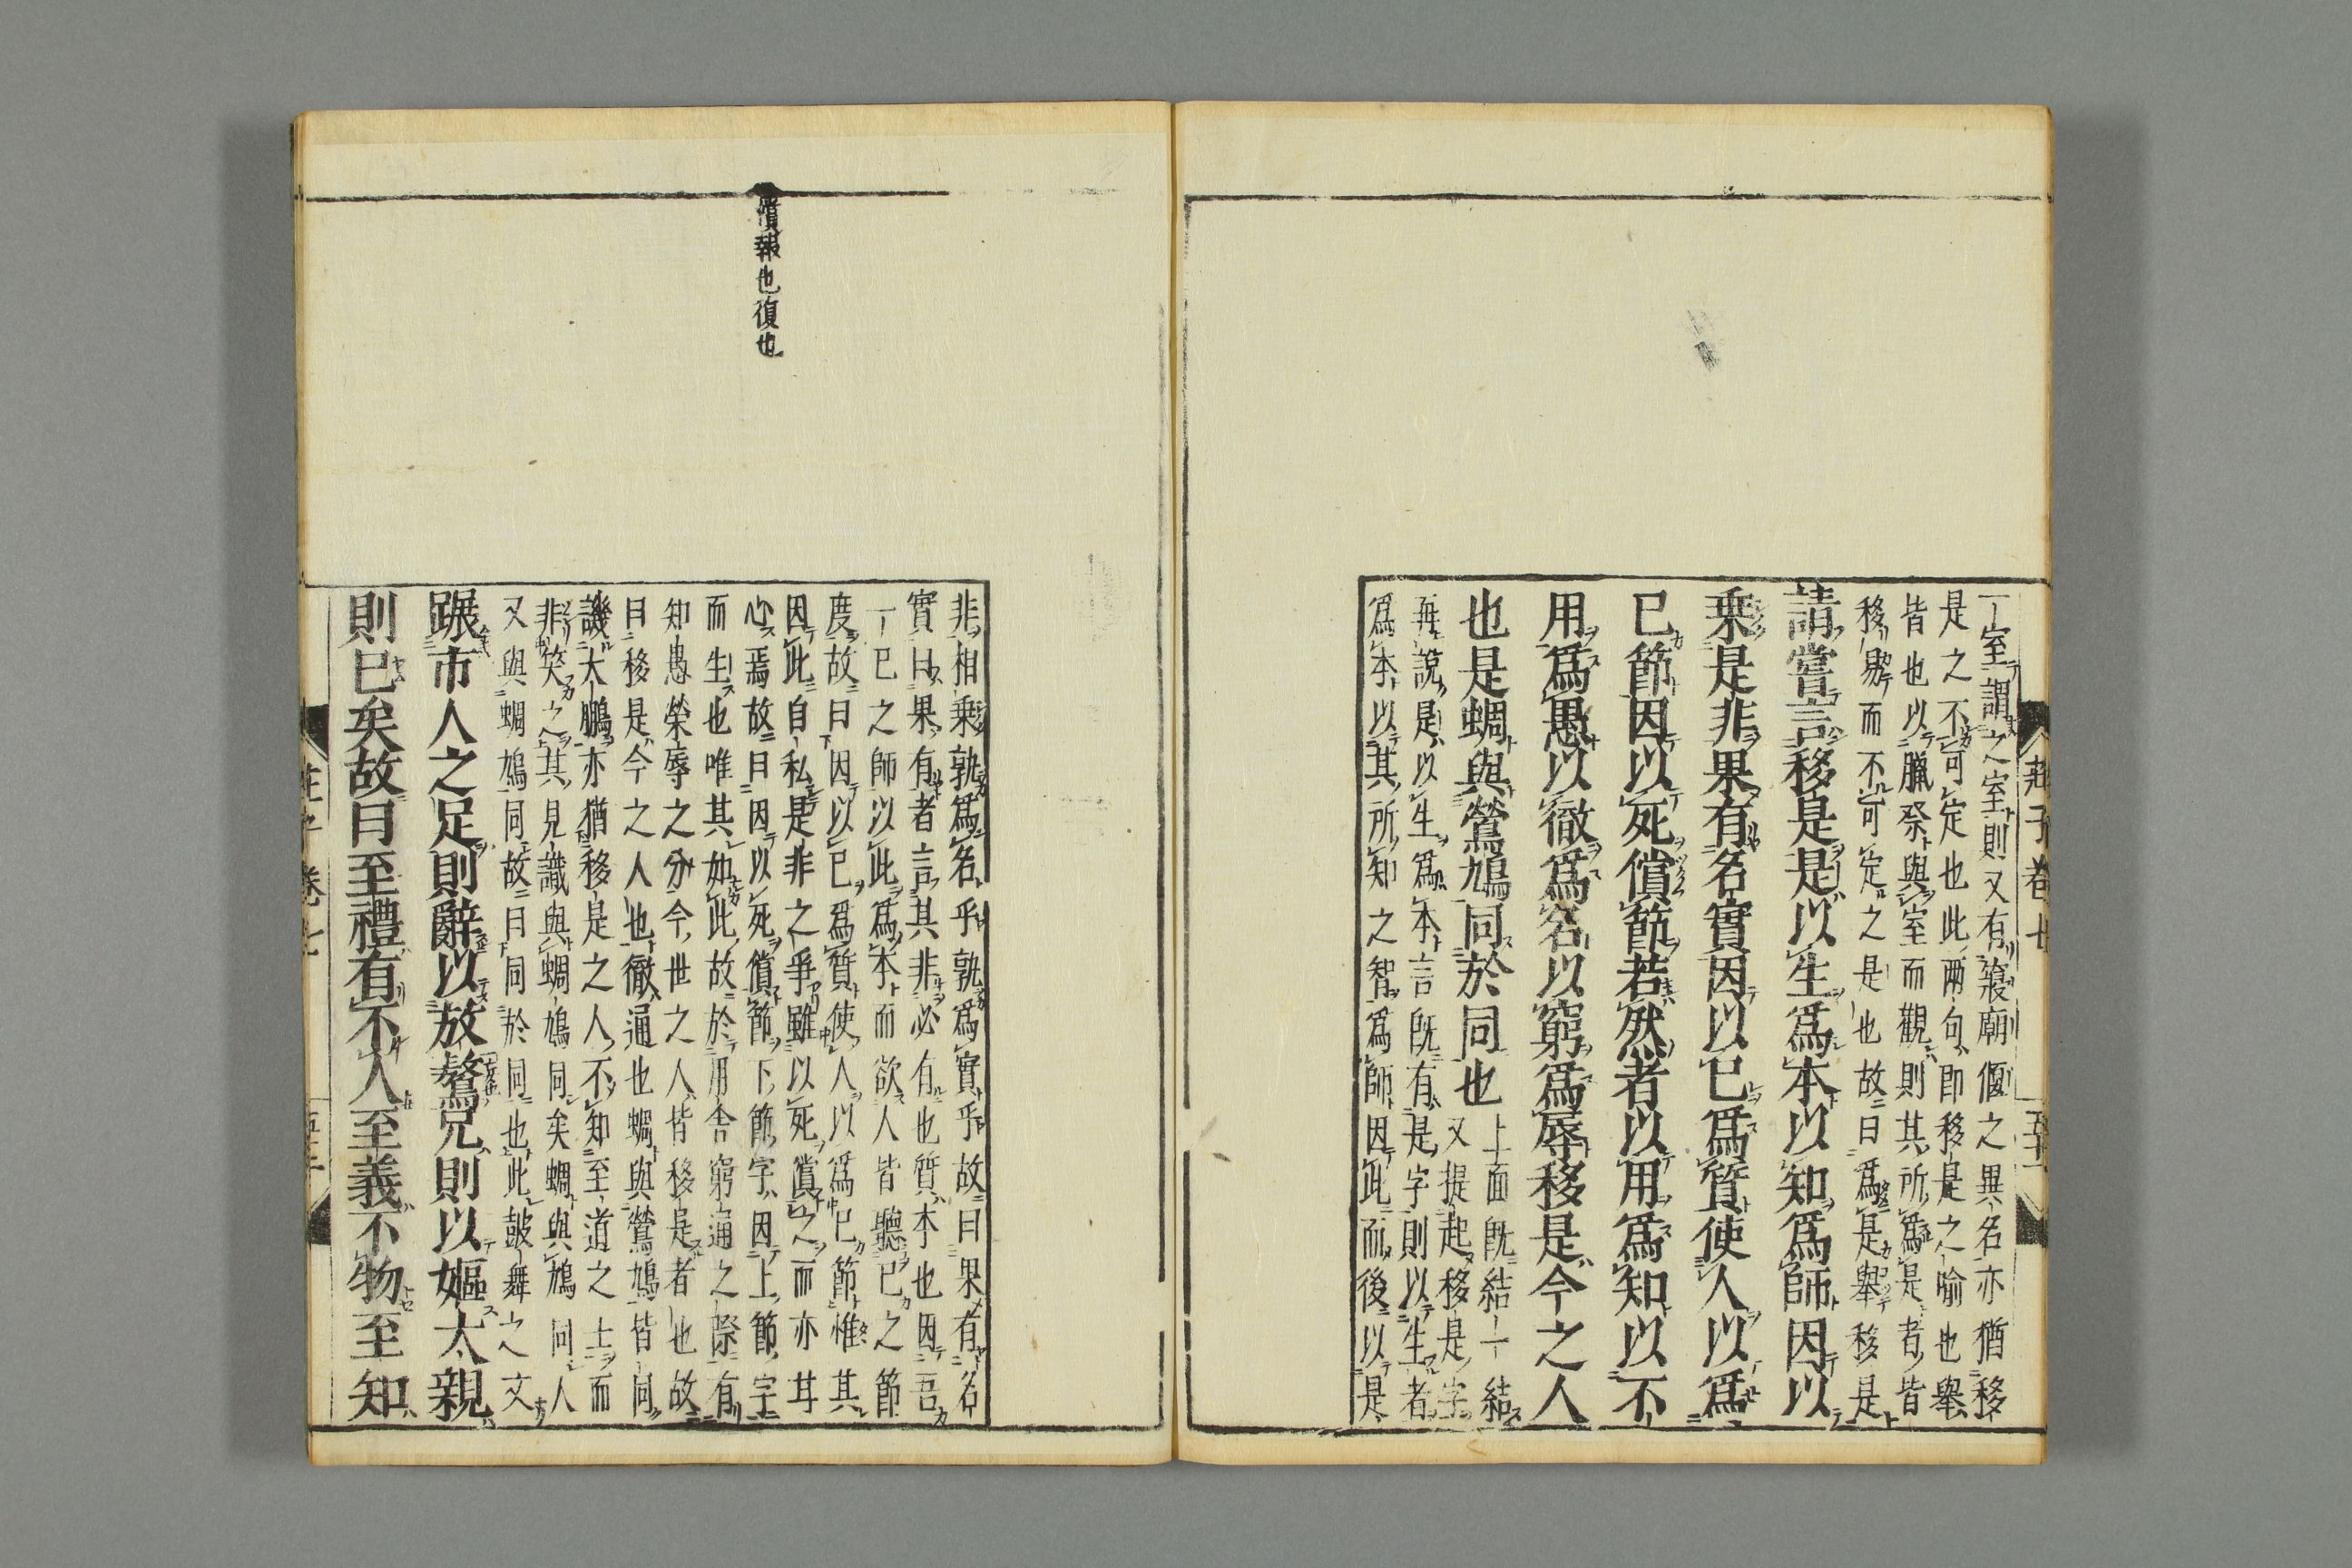 莊子卷七
五十
一室謂之室則又有寢廟偃之異名亦猶移
是之不可定也此兩句即移是之喻也舉
皆也以臘祭與室而觀則其所爲是者皆
移易而不可定之是也故曰爲是舉移是
請嘗言移是是以生爲本以知爲師因以
乘是非果有名實因以己爲質使人以爲
己節因以死償節若然者以用爲知以不
用爲愚以徹爲名以窮爲辱移是今之人
也是蜩與鷽鳩同於同也
上面既結一結
又提起移是字
再說是以生爲本言既有是字則以生者
爲本以其所知之智爲師因此而後以是
償報也復也
非相乘孰爲名乎孰爲實乎故曰果有名
實曰果有者言其非必有也質本也因吾
一己之師以此爲本而欲人皆聽己之節
度故曰因以己爲質使人以爲己節惟其
因此自私是非之爭雖以死償之而亦甘
心焉故曰因以死償節下節字因上節字
而生也唯其如此故於用舍窮通之際有
知愚榮辱之分今世之人皆移是者也故
曰移是今之人也徹通也蜩與鷽鳩皆同
譏大鵬亦猶移是之人不知至道之士而
非笑之其見識與蜩鳩同矣蜩與鳩同人
又與蜩鳩同故曰同於同也此鼓舞之文
蹍市人之足則辭以放驁兄則以嫗大親
則已矣故曰至禮有不人至義不物至知
莊子卷七